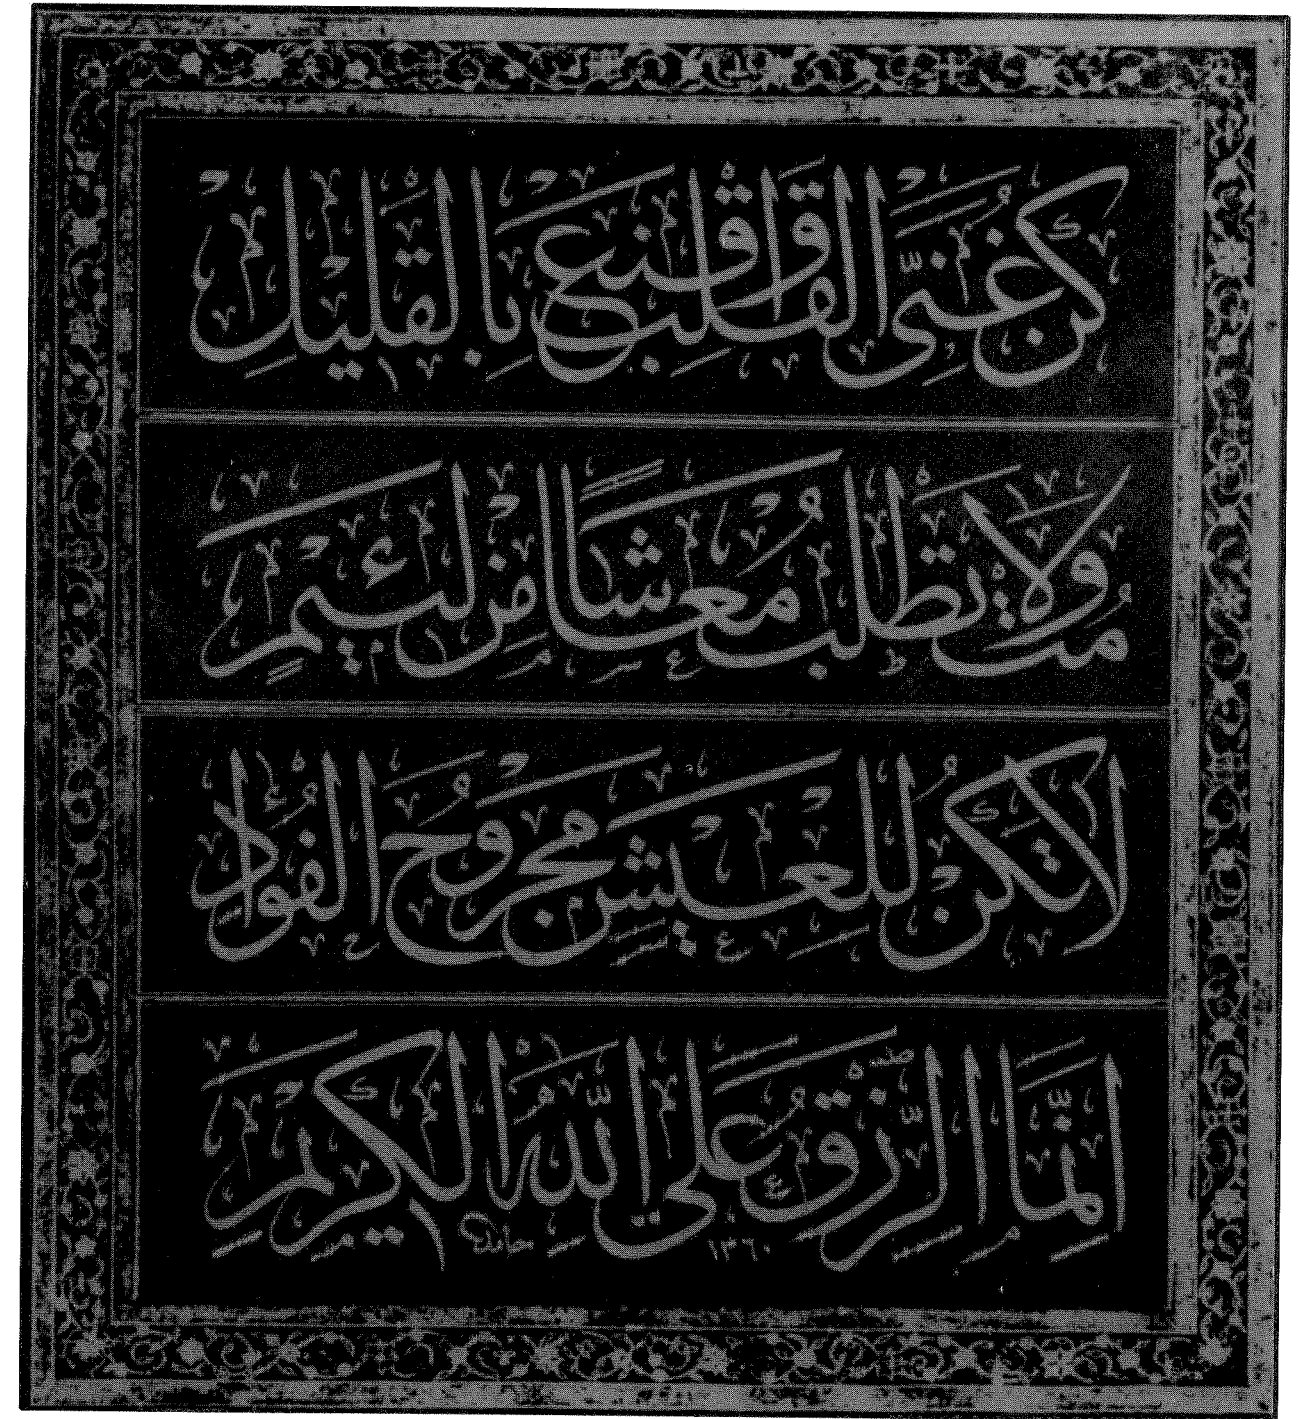 كُنْ غَنِيَّ الْقَلْبِ وَاقْنَعْ بِالْقَلِيلِ
مُتْ وَلَا تَطْلُبْ مَعَاشًا مِنْ لَئِيمٍ
لَا تَكُنْ لِلْعَيْشِ مَجْرُوحَ الْفُؤَادِ
اِنَّمَا الرِّزْقُ عَلَى اللّٰهِ الْكَرِيمِ
حامد ١٣٦٠